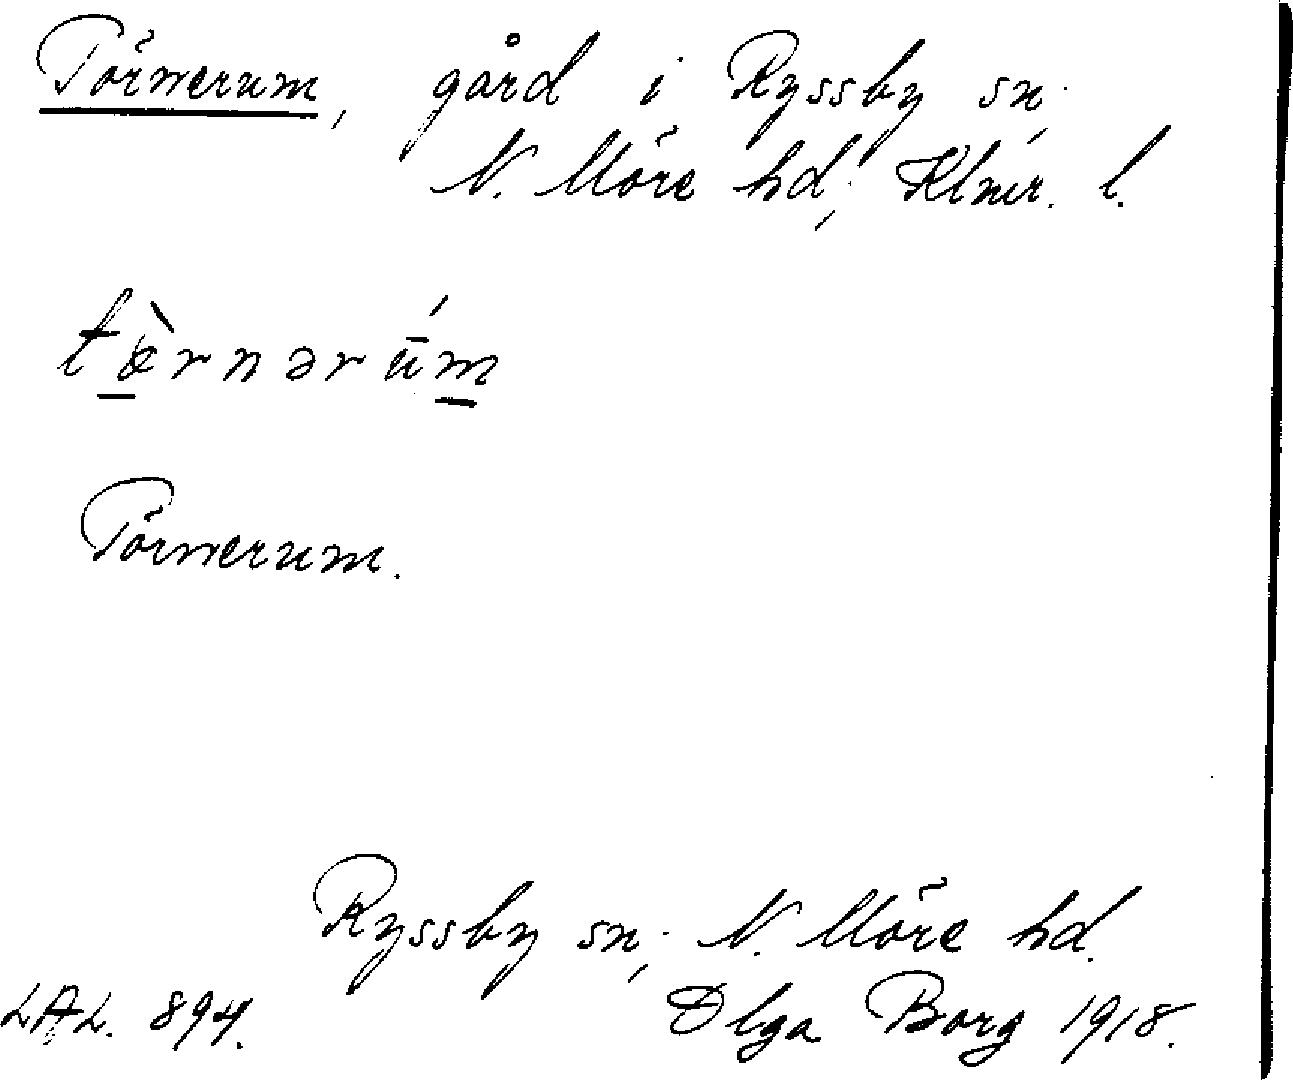 Törnerum, gård i Ryssby sn,
N. Möre hd, Klmr. l.
tæ̀rnərū́m
Törnerum.
Ryssby sn, N. Möre hd.
LAL. 894. Olga Borg 1918.